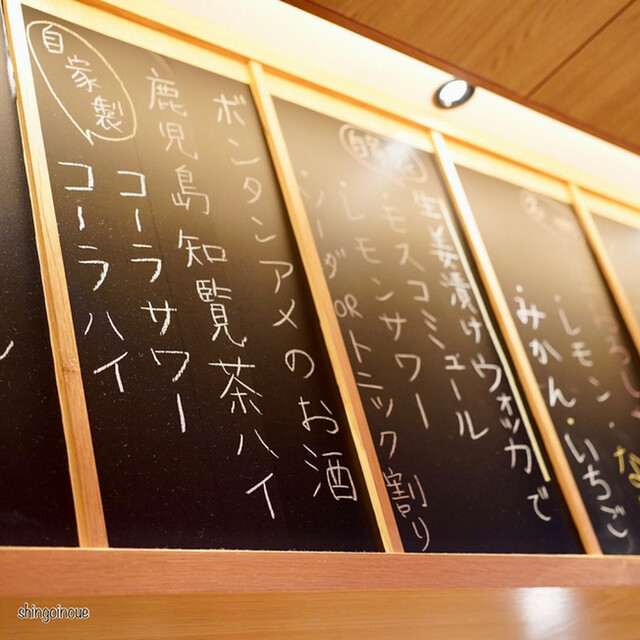 なし
・レモン
・みかん・いちご
自家製
生姜漬けウォッカで
・モスコミュール
・レモンサワー
・ソーダORトニック割り
ボンタンアメのお酒
鹿児島知覧茶ハイ
自家製
コーラサワー
コーラハイ
shingoinoue